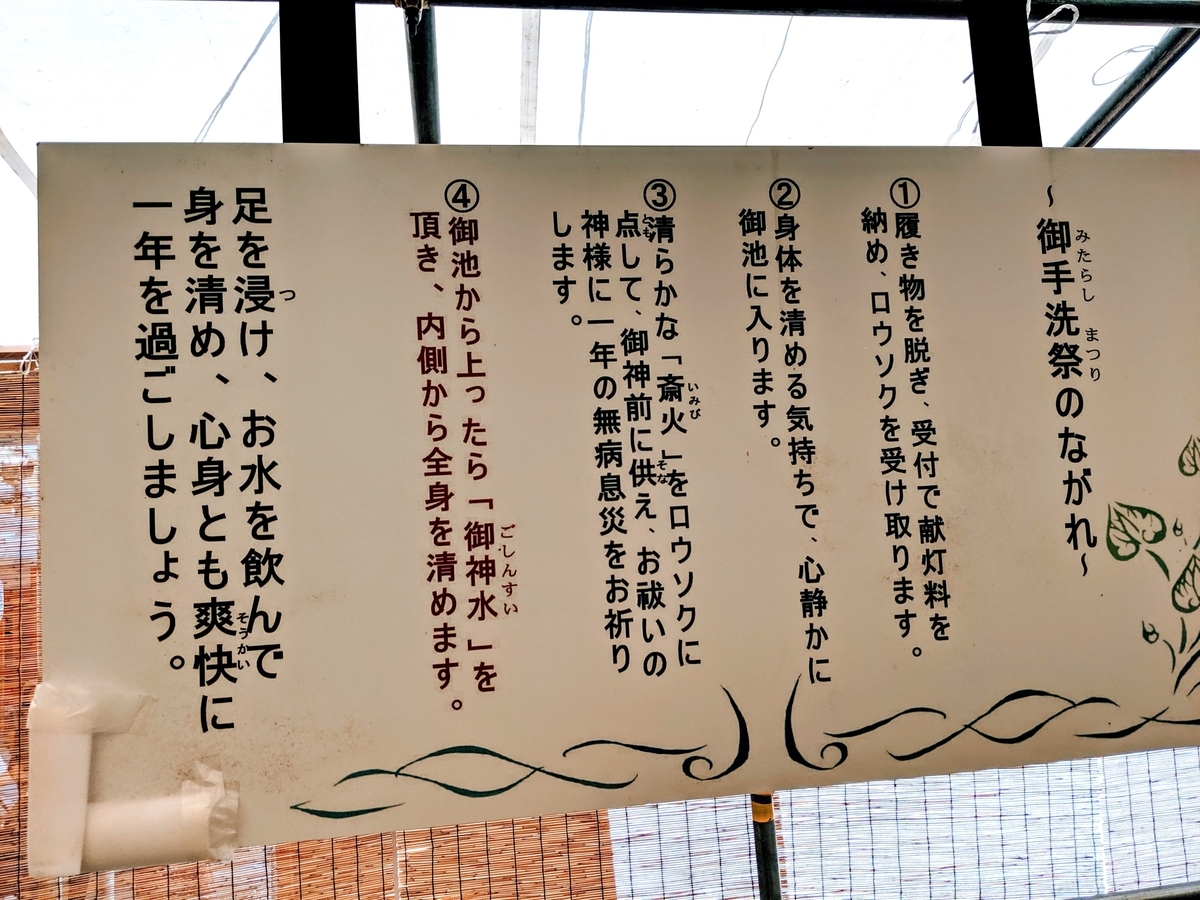 ～御手洗祭のながれ～
みたらし まつり
①履き物を脱ぎ、受付で献灯料を
納め、ロウソクを受け取ります。
②身体を清める気持ちで、心静かに
御池に入ります。
③清らかな「斎火」をロウソクに
いみび
点して、御神前に供え、お祓いの
とも
そな
神様に一年の無病息災をお祈り
します。
④御池から上ったら「御神水」を
ごしんすい
頂き、内側から全身を清めます。
足を浸け、お水を飲んで
つ
身を清め、心身とも爽快に
そうかい
一年を過ごしましょう。